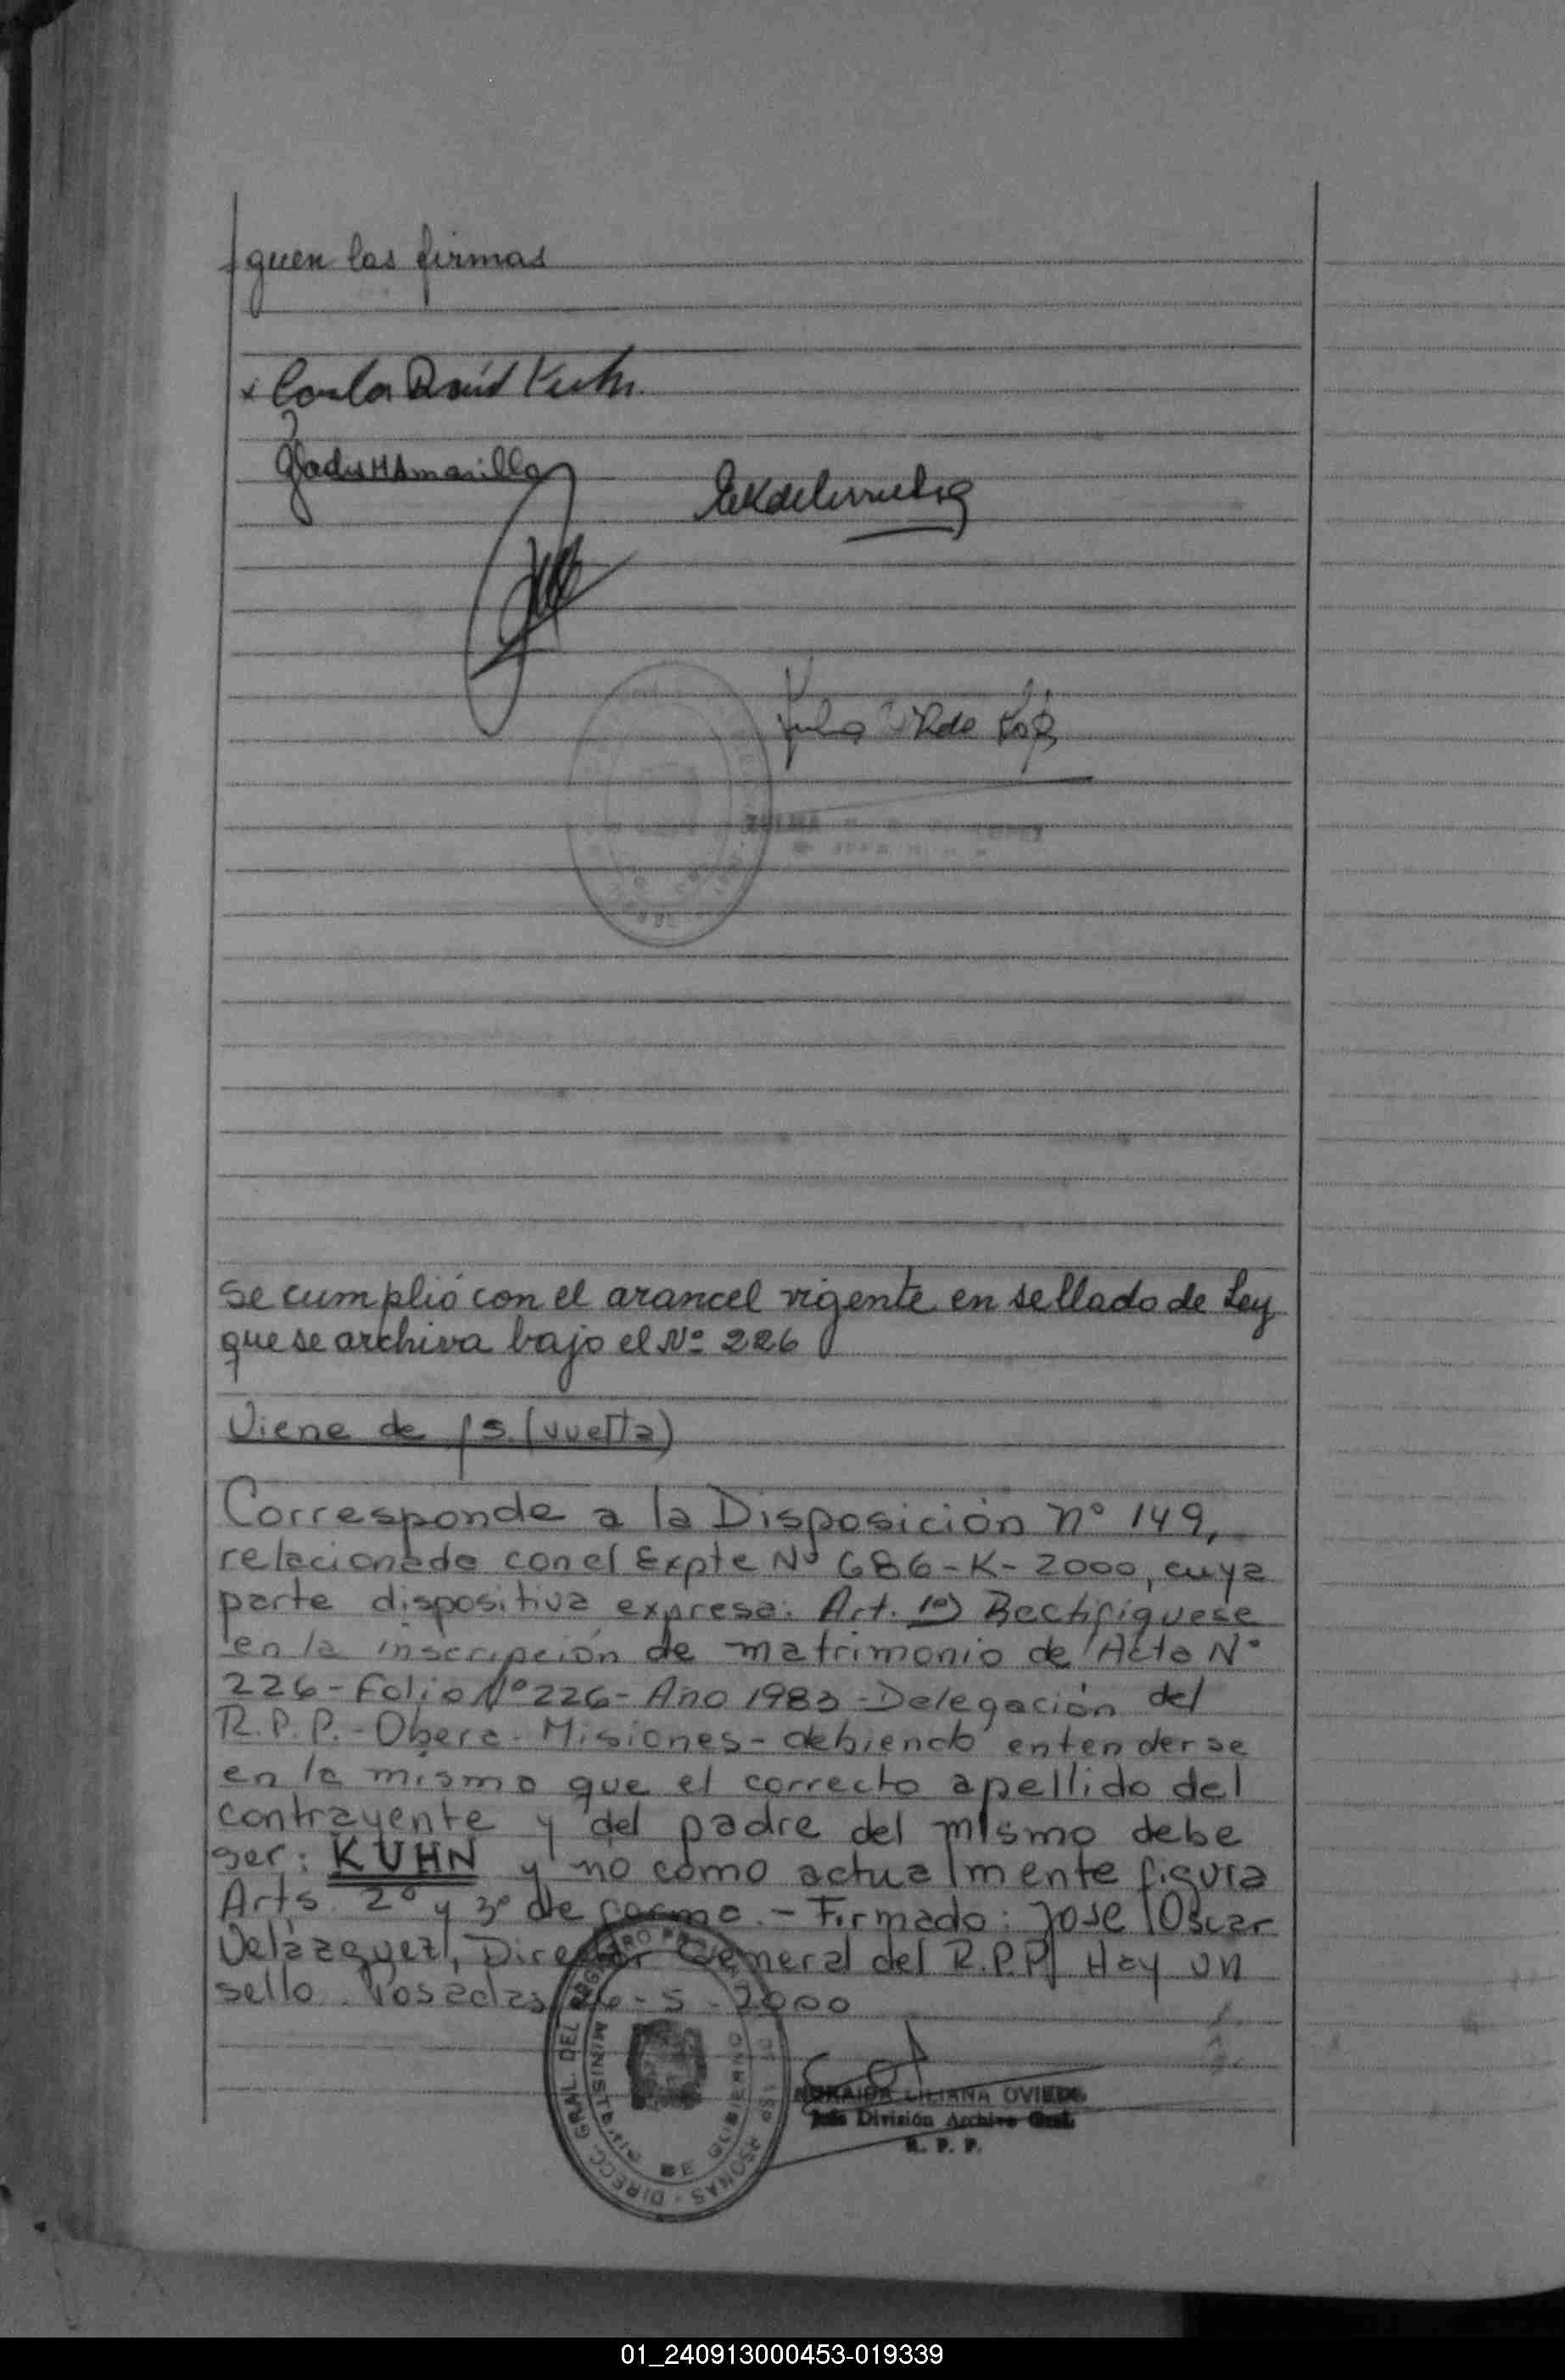 guen las firmas
Carlos David Kuhn
Gladis H Amarilla
Se cumplió con el arancel vigente en sellado de Ley
que se archiva bajo el Nº 226
Viene de fs. (vuelta)
Corresponde a la Disposición nº 149,
relacionado con el Expte Nº 686-K-2000, cuya
parte dispositiva expresa: Art. 1º) Rectifiquese
en la inscripción de matrimonio de Acta Nº
226-Folio Nº 226-Año 1983-Delegación del
R.P.P.-Obera-Misiones-debiendo entenderse
en la misma que el correcto apellido del
contrayente y del padre del mismo debe
ser: KUHN y no como actualmente figura
Arts. 2º y 3º de forma.- Firmado: Jose Oscar
Velázquez, Director General del R.P.P. Hay un
sello. Posadas, 26-5-2000
DIRECC. GRAL. DEL REGISTRO PERSONAS
MINISTERIO DE GOBIERNO
LILIANA OVIEDO
Jefe División Archivo Gral.
R. P. P.
01_240913000453-019339